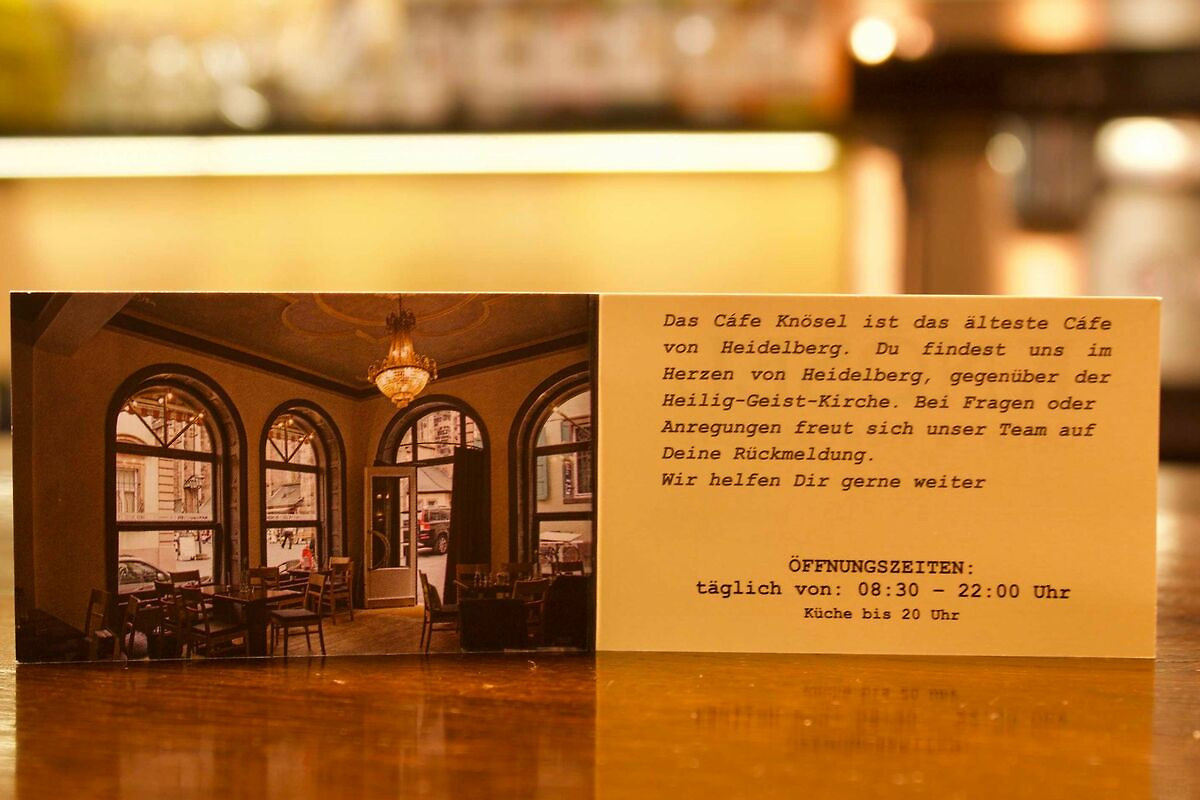 Das Cáfe Knösel ist das älteste Cáfe
von Heidelberg. Du findest uns im
Herzen von Heidelberg, gegenüber der
Heilig-Geist-Kirche. Bei Fragen oder
Anregungen freut sich unser Team auf
Deine Rückmeldung.
Wir helfen Dir gerne weiter
ÖFFNUNGSZEITEN:
täglich von: 08:30 – 22:00 Uhr
Küche bis 20 Uhr